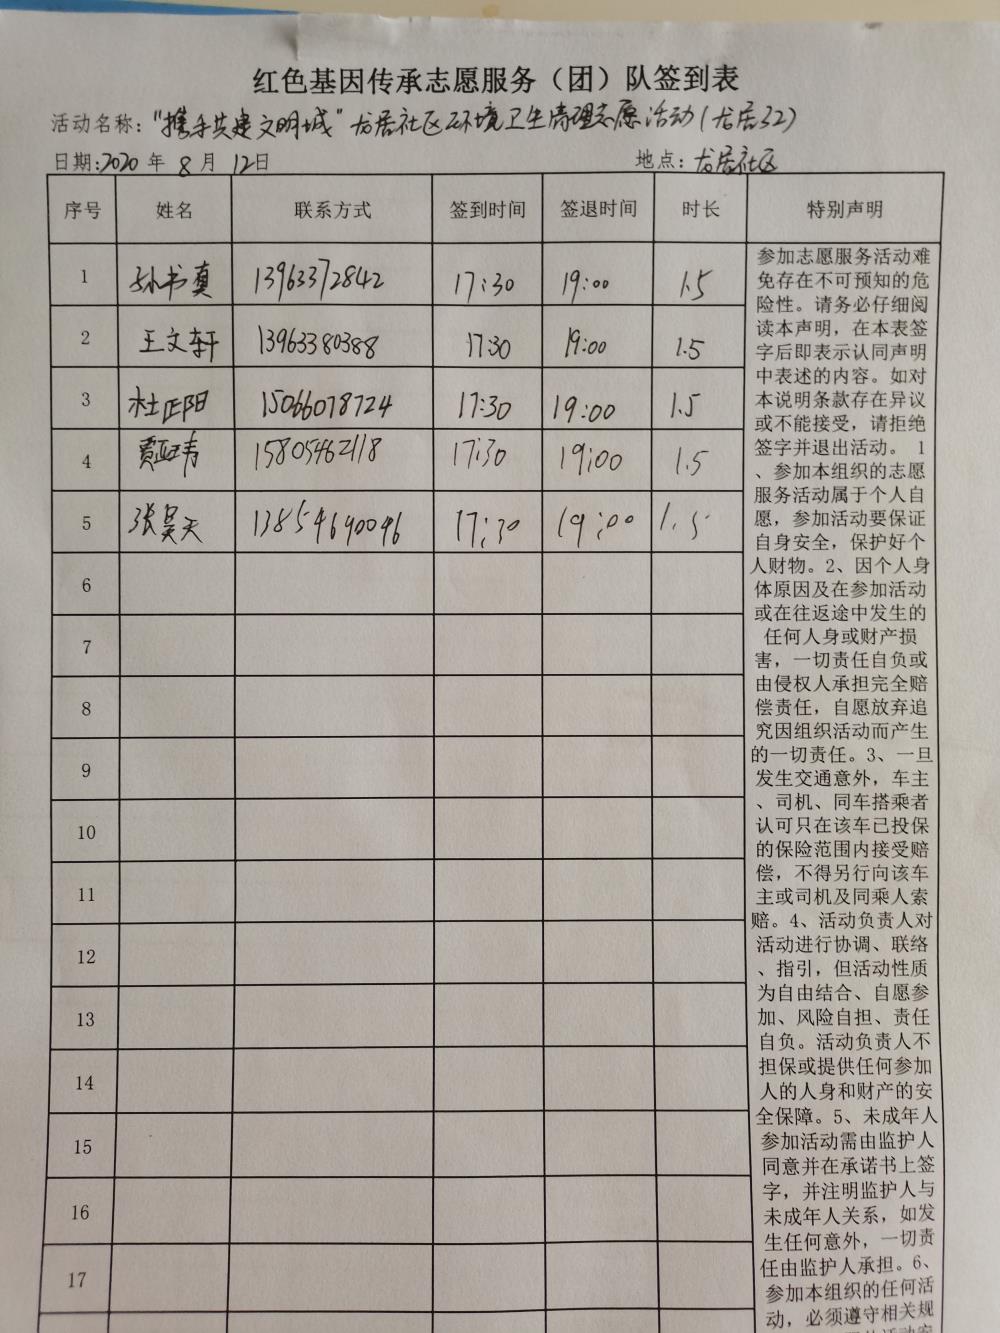 红色基因传承志愿服务（团）队签到表
活动名称："携手共建文明城"龙居社区环境卫生清理志愿活动(龙居32)
日期:2020 年 8 月 12日 地点：龙居社区
序号 姓名 联系方式 签到时间 签退时间 时长 特别声明
1 孙书真 13963372842 17:30 19:00 1.5
2 王文轩 13963380388 17:30 19:00 1.5
3 杜正阳 15066078724 17:30 19:00 1.5
4 15805462118 17:30 19:00 1.5
5 张昊天 13854690046 17:30 19:00 1.5
6
7
8
9
10
11
12
13
14
15
16
17
参加志愿服务活动难
免存在不可预知的危
险性。请务必仔细阅
读本声明，在本表签
字后即表示认同声明
中表述的内容。如对
本说明条款存在异议
或不能接受，请拒绝
签字并退出活动。 1
、参加本组织的志愿
服务活动属于个人自
愿，参加活动要保证
自身安全，保护好个
人财物。2、因个人身
体原因及在参加活动
或在往返途中发生的
任何人身或财产损
害，一切责任自负或
由侵权人承担完全赔
偿责任，自愿放弃追
究因组织活动而产生
的一切责任。3、一旦
发生交通意外，车主
、司机、同车搭乘者
认可只在该车已投保
的保险范围内接受赔
偿，不得另行向该车
主或司机及同乘人索
赔。4、活动负责人对
活动进行协调、联络
、指引，但活动性质
为自由结合、自愿参
加、风险自担、责任
自负。活动负责人不
担保或提供任何参加
人的人身和财产的安
全保障。5、未成年人
参加活动需由监护人
同意并在承诺书上签
字，并注明监护人与
未成年人关系，如发
生任何意外，一切责
任由监护人承担。6、
参加本组织的任何活
动，必须遵守相关规